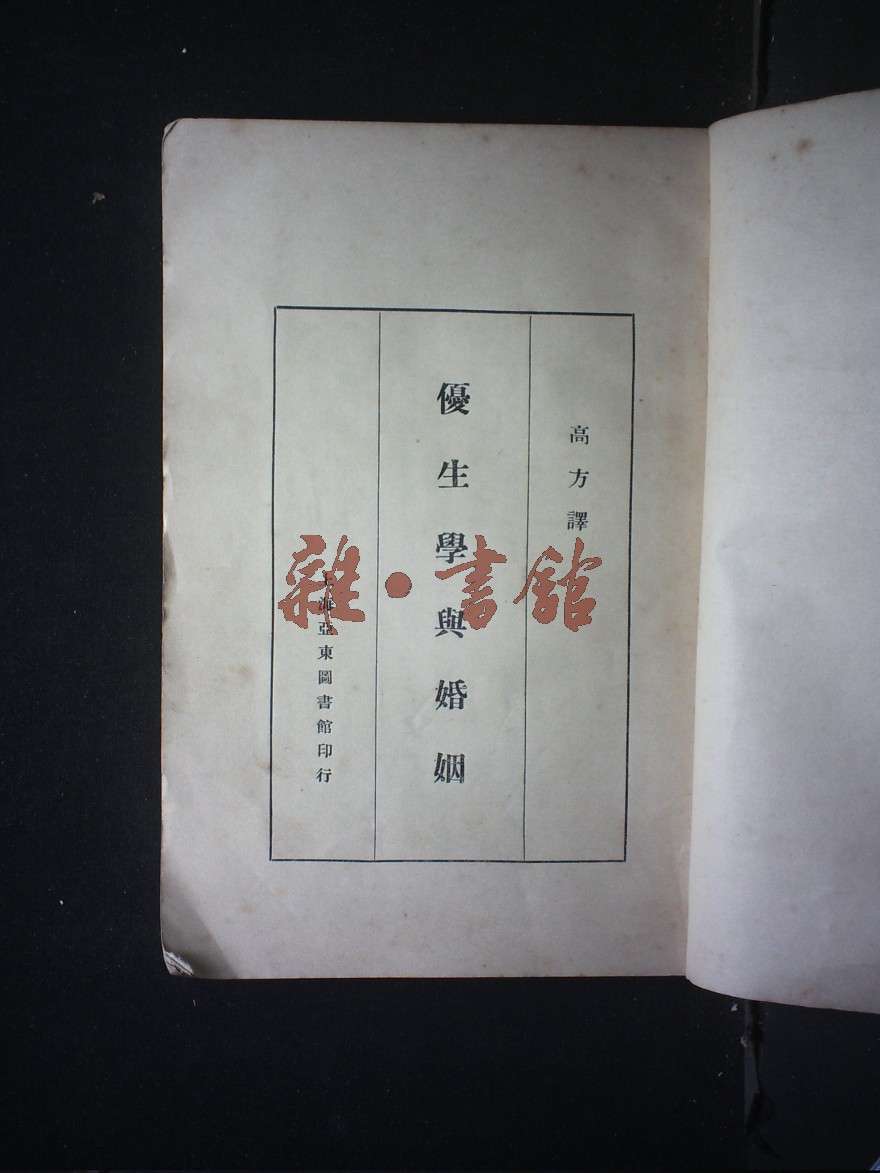 高方譯
優生學與婚姻
上海亞東圖書館印行
雜·書館